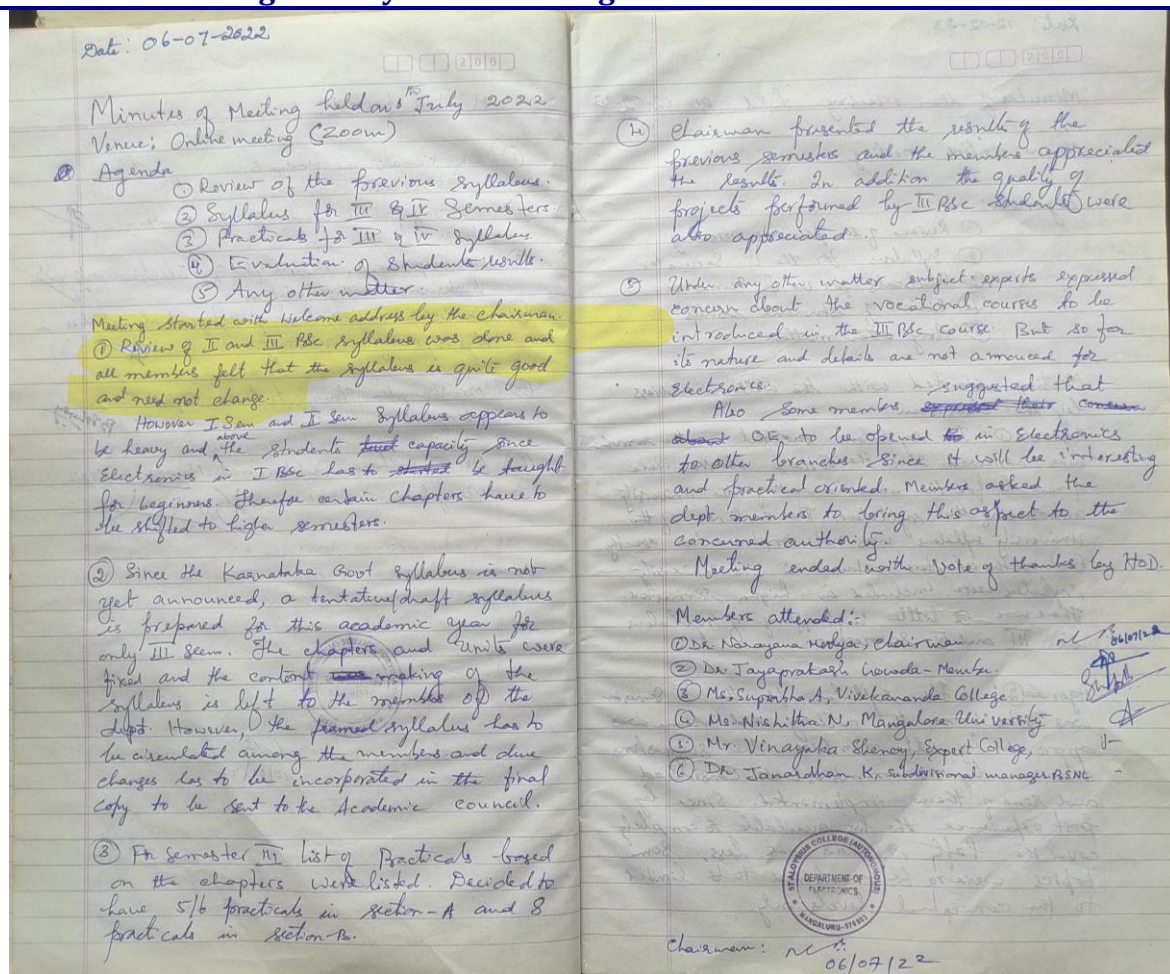 Date: 06-07-2022
Minutes of Meeting held on 5th July 2022
Venue: Online meeting (Zoom)
Agenda
① Review of the previous syllabus.
② Syllabus for III & IV Semesters.
③ Practicals for III & IV Syllabus.
④ Evaluation of Students results.
⑤ Any other matter.
Meeting started with welcome address by the chairman.
① Review of II and III BSc syllabus was done and
all members felt that the syllabus is quite good
and need not change.
However I Sem and II Sem Syllabus appears to
be heavy and above the students capacity since
Electronics in I BSc has to started be taught
for beginners. Therefore certain chapters have to
be shifted to higher semesters.
② Since the Karnataka Govt syllabus is not
yet announced, a tentative/draft syllabus
is prepared for this academic year for
only III Sem. The chapters and Units were
fixed and the content making of the
syllabus is left to the members of the
dept. However, the framed syllabus has to
be circulated among the members and due
changes has to be incorporated in the final
copy to be sent to the Academic council.
③ For Semester III List of Practicals based
on the chapters were listed. Decided to
have 5/6 practicals in section-A and 8
practicals in section-B.
④ Chairman presented the results of the
previous semesters and the members appreciated
the results. In addition the quality of
projects performed by III BSc Students were
also appreciated.
⑤ Under any other matter subject experts expressed
concern about the vocational courses to be
introduced in the III BSc course. But so far
its nature and details are not annouced for
Electronics.
Also Some members expressed their concern suggested that
about OE to be opened to in Electronics
to other branches since it will be interesting
and practical oriented. Members asked the
dept members to bring this aspect to the
concerned authority.
Meeting ended with Vote of thanks by HOD.
Members attended:-
① Dr Narayana Moolya, Chairman 06/07/22
② Dr Jayaprakash Gowda - Member.
③ Ms. Suprabha A, Vivekananda College
④ Ms. Nishitha N, Mangalore University
⑤ Mr. Vinayaka Shenoy, Expert College,
⑥ Dr. Janardhan K, subdivisional manager BSNL
ST ALOYSIUS COLLEGE (AUTONOMOUS)
DEPARTMENT OF
ELECTRONICS
MANGALURU-575003
Chairman:
06/07/22